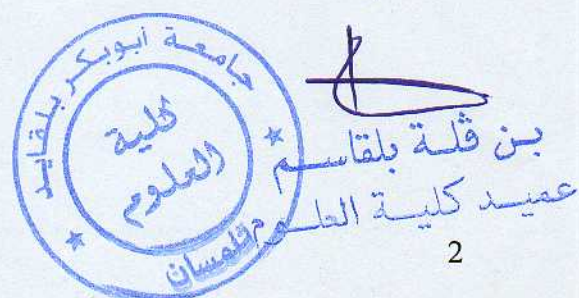 جامعة أبوبكر بلقايد
كلية
العلوم
تلمسان
بن ڤلة بلقاسم
عميد كلية العلوم
2